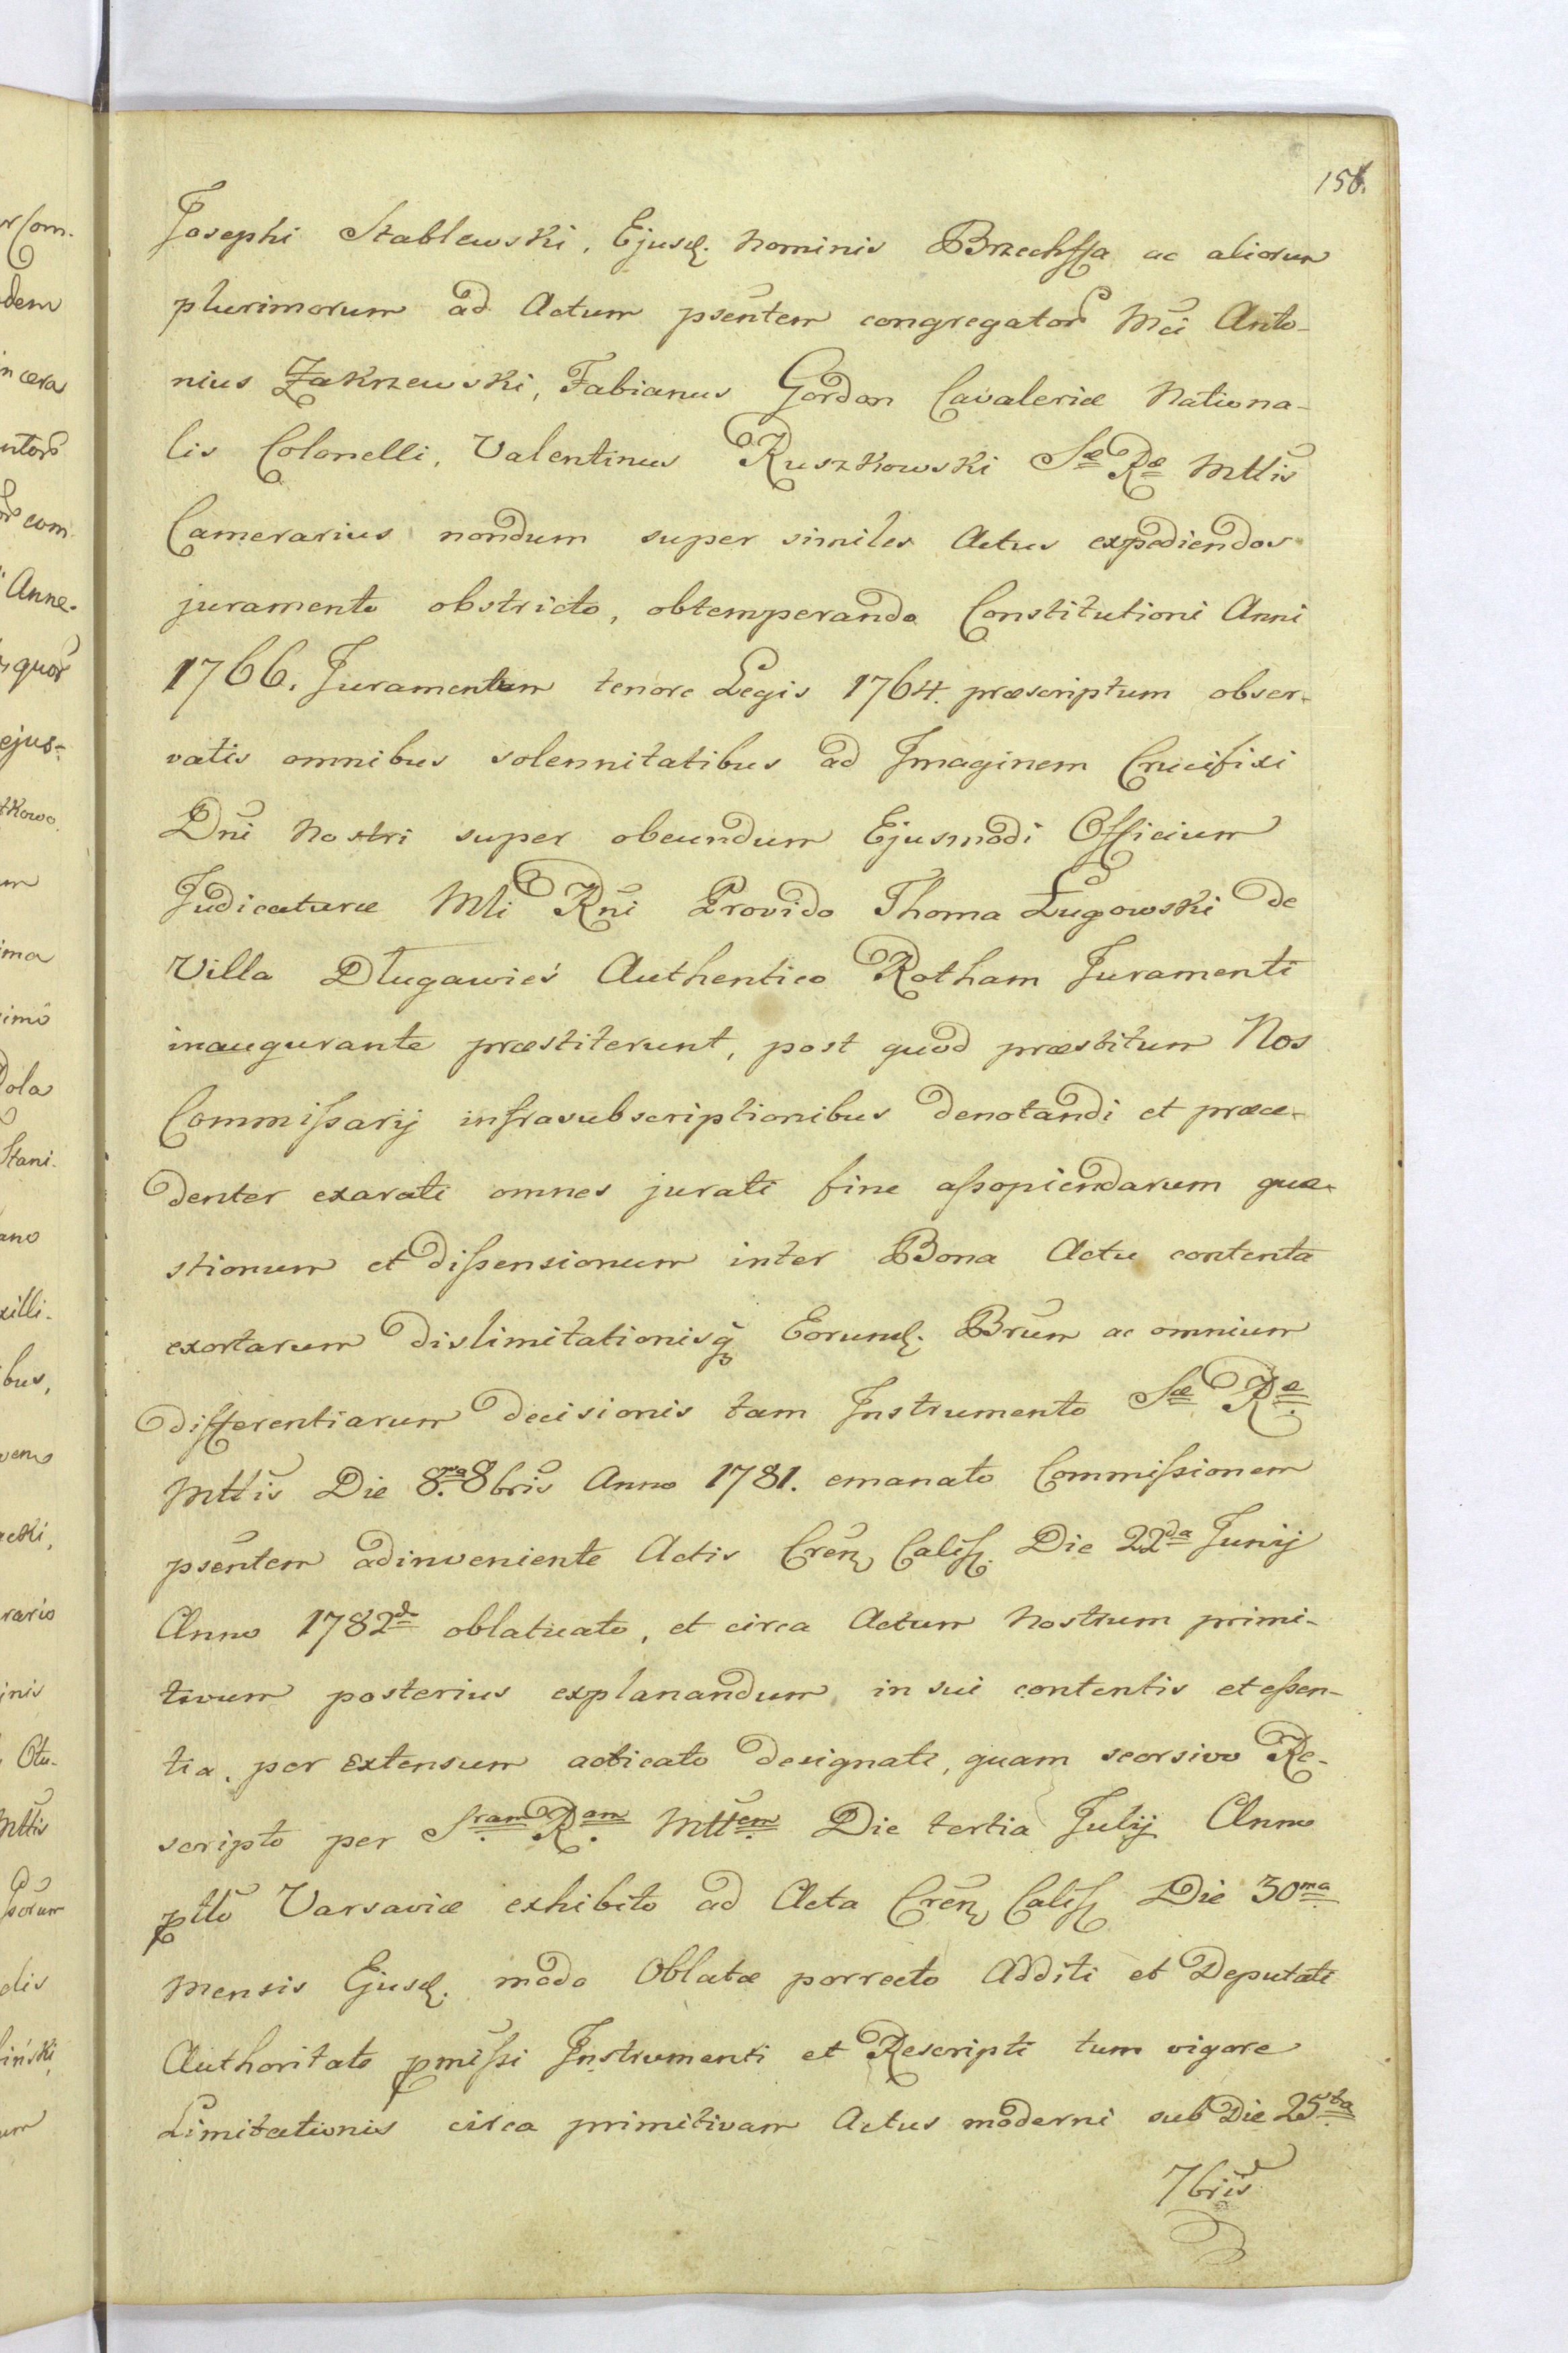 156.
Josephi Stablewski, Ejusd. Nominis Brzechffa ac aliorum
plurimorum ad Actum psentem congregator Mci Anto-
nius Zakrzewski, Fabianus Gordon Cavaleriæ Nationa-
lis Colonelli, Valentinus Ruszkowski Sæ Ræ Mttis
Camerarius nondum super similes Actus expediendos
juramento obstricto, obtemperando Constitutioni Anni
1766. Juramentum tenore Legis 1764. præscriptum obser-
vatis omnibus solennitatibus ad Imaginem Crucifixi
Dni Nostri super obeundum Ejusmodi Officium
Judicaturæ Mli Rni Provido Thoma Ługowski de
Villa Długawieś Authentico Rotham Juramenti
inaugurante præstiterunt, post quod præstitum Nos
Commißarij infrasubscriptionibus denotandi et præce-
denter exarati omnes jurati fine aßopiendarum quæ-
stionum et dißensionum inter Bona Actu contenta
exortarum dislimitationisq Eorund. Brum ac omnium
differentiarum decisionis tam Instrumento Sæ Ræ
Mttis Die 8.va 8bris Anno 1781. emanato Commißionem
psentem adinveniente Actis Cren Calis. Die 22da Junij
Anno 1782do oblaticato, et circa Actum Nostrum primi-
tivum posterius explanandum, in sui contentis et eßen-
tia, per extensum acticato designati, quam seorsivo Re-
scripto per Sram Ram Mttem Die tertia Julij Anno
ptto Varsaviæ exhibito ad Acta Cren Calis. Die 30ma
mensis Ejusd. modo Oblatæ porrecto Additi et Deputati
Authoritate pmißi Instrumenti et Rescripti tum vigore
Limitationis circa primitivam Actus moderni sub Die 25ta
7bris